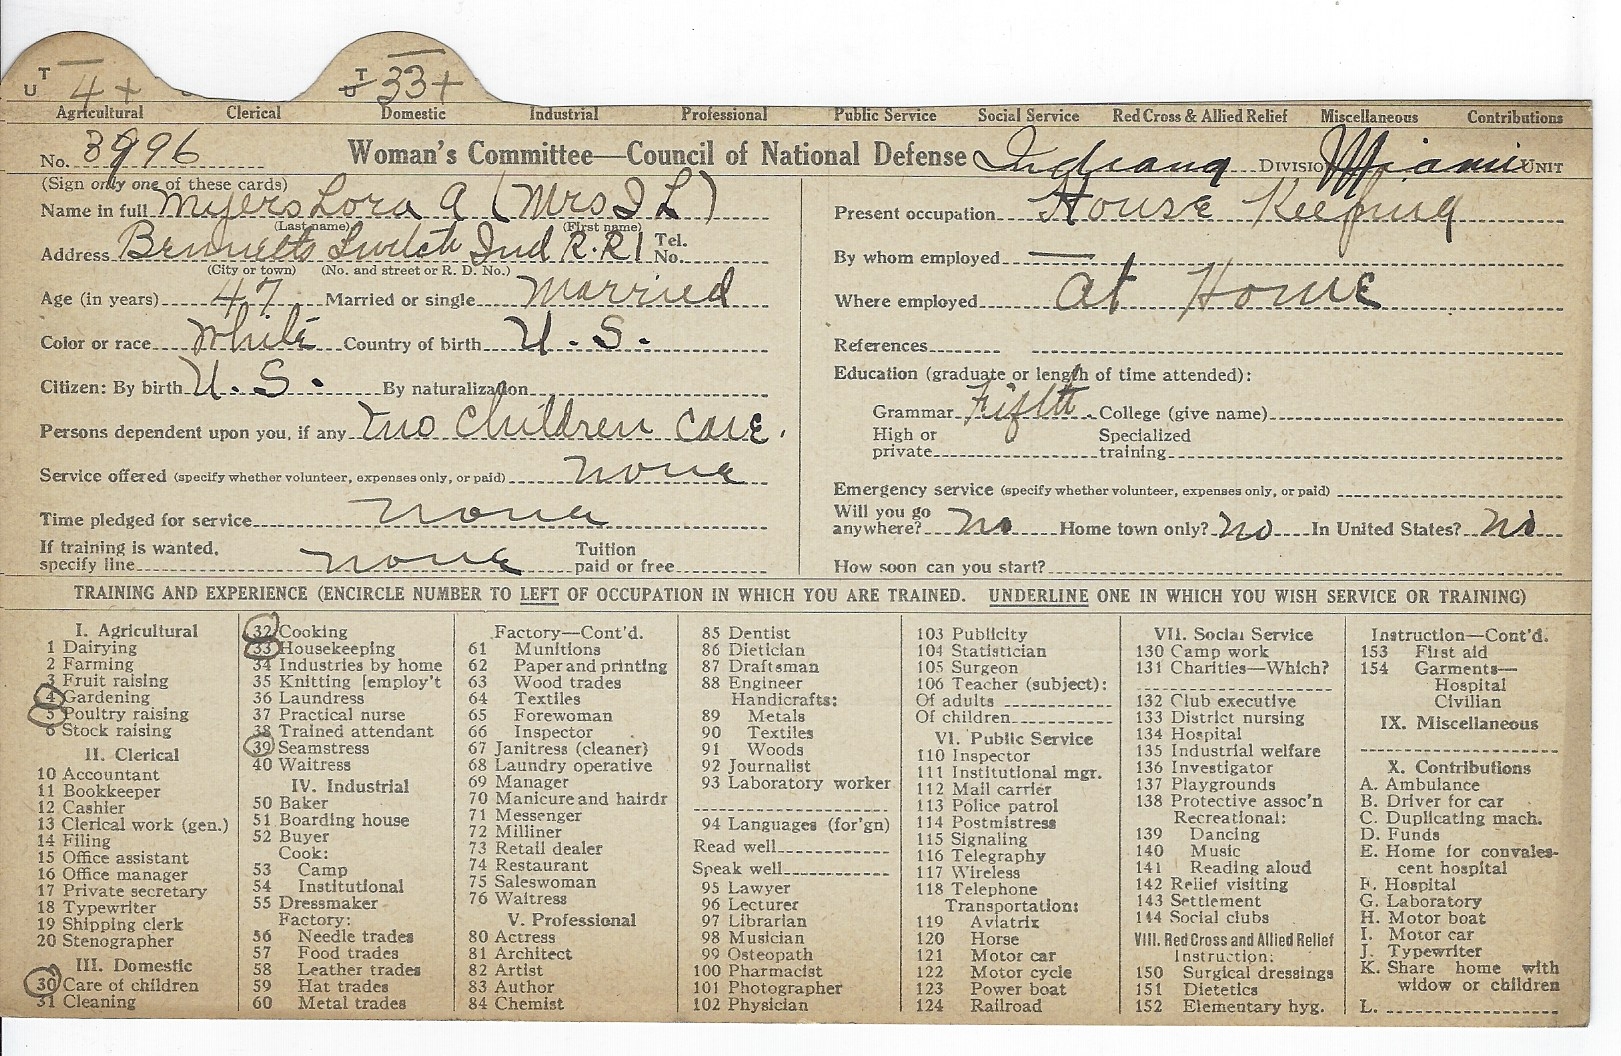 T — T —
U 4+ U 33+
Agricultural Clerical Domestic Industrial Professional Public Service Social Service Red Cross & Allied Relief Miscellaneous Contributions
No. 3996 Woman's Committee—Council of National Defense Indiana DIVISION Miami UNIT
(Sign only one of these cards)
Name in full Myers Lora A (Mrs I L)
(Last name) (First name)
Address Bennetts Switch Ind R.R 1 Tel. No.
(City or town) (No. and street or R. D. No.)
Age (in years) 47 Married or single Married
Color or race White Country of birth U. S.
Citizen: By birth U. S. By naturalization
Persons dependent upon you, if any Two Children Care.
Service offered (specify whether volunteer, expenses only, or paid) none
Time pledged for service none
If training is wanted, specify line none Tuition paid or free
Present occupation House Keeping
By whom employed —
Where employed at Home
References
Education (graduate or length of time attended):
Grammar Fifth College (give name)
High or private Specialized training
Emergency service (specify whether volunteer, expenses only, or paid)
Will you go anywhere? no Home town only? no In United States? no
How soon can you start?
TRAINING AND EXPERIENCE (ENCIRCLE NUMBER TO LEFT OF OCCUPATION IN WHICH YOU ARE TRAINED. UNDERLINE ONE IN WHICH YOU WISH SERVICE OR TRAINING)
I. Agricultural
1 Dairying
2 Farming
3 Fruit raising
4 Gardening
5 Poultry raising
6 Stock raising
II. Clerical
10 Accountant
11 Bookkeeper
12 Cashier
13 Clerical work (gen.)
14 Filing
15 Office assistant
16 Office manager
17 Private secretary
18 Typewriter
19 Shipping clerk
20 Stenographer
III. Domestic
30 Care of children
31 Cleaning
32 Cooking
33 Housekeeping
34 Industries by home
35 Knitting [employ't
36 Laundress
37 Practical nurse
38 Trained attendant
39 Seamstress
40 Waitress
IV. Industrial
50 Baker
51 Boarding house
52 Buyer
Cook:
53 Camp
54 Institutional
55 Dressmaker
Factory:
56 Needle trades
57 Food trades
58 Leather trades
59 Hat trades
60 Metal trades
Factory—Cont'd.
61 Munitions
62 Paper and printing
63 Wood trades
64 Textiles
65 Forewoman
66 Inspector
67 Janitress (cleaner)
68 Laundry operative
69 Manager
70 Manicure and hairdr
71 Messenger
72 Milliner
73 Retail dealer
74 Restaurant
75 Saleswoman
76 Waitress
V. Professional
80 Actress
81 Architect
82 Artist
83 Author
84 Chemist
85 Dentist
86 Dietician
87 Draftsman
88 Engineer
Handicrafts:
89 Metals
90 Textiles
91 Woods
92 Journalist
93 Laboratory worker
94 Languages (for'gn)
Read well
Speak well
95 Lawyer
96 Lecturer
97 Librarian
98 Musician
99 Osteopath
100 Pharmacist
101 Photographer
102 Physician
103 Publicity
104 Statistician
105 Surgeon
106 Teacher (subject):
Of adults
Of children
VI. Public Service
110 Inspector
111 Institutional mgr.
112 Mail carrier
113 Police patrol
114 Postmistress
115 Signaling
116 Telegraphy
117 Wireless
118 Telephone
Transportation:
119 Aviatrix
120 Horse
121 Motor car
122 Motor cycle
123 Power boat
124 Railroad
VII. Social Service
130 Camp work
131 Charities—Which?
132 Club executive
133 District nursing
134 Hospital
135 Industrial welfare
136 Investigator
137 Playgrounds
138 Protective assoc'n
Recreational:
139 Dancing
140 Music
141 Reading aloud
142 Relief visiting
143 Settlement
144 Social clubs
VIII. Red Cross and Allied Relief
Instruction:
150 Surgical dressings
151 Dietetics
152 Elementary hyg.
Instruction—Cont'd.
153 First aid
154 Garments—
Hospital
Civilian
IX. Miscellaneous
X. Contributions
A. Ambulance
B. Driver for car
C. Duplicating mach.
D. Funds
E. Home for convales-
cent hospital
F. Hospital
G. Laboratory
H. Motor boat
I. Motor car
J. Typewriter
K. Share home with
widow or children
L.